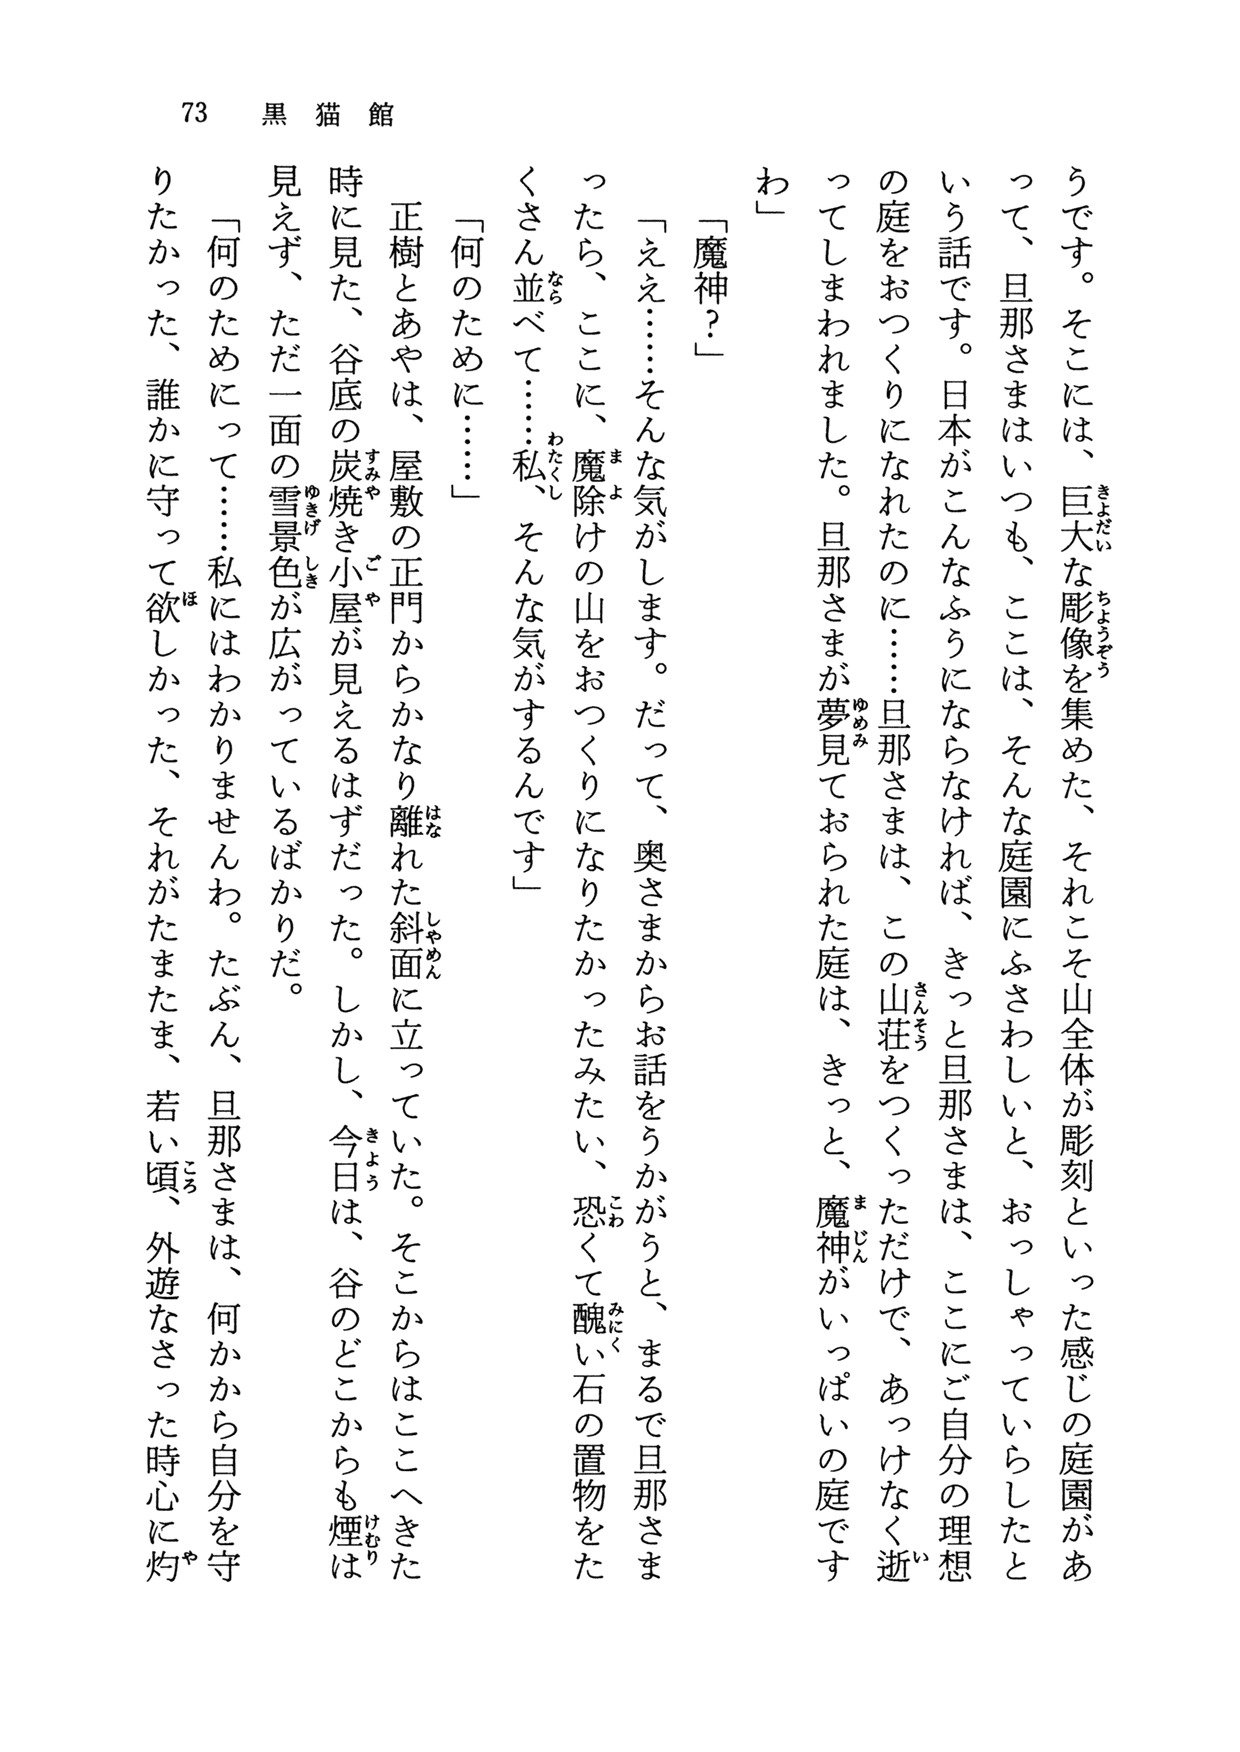 73　黒猫館
うです。そこには、巨大な彫像を集めた、それこそ山全体が彫刻といった感じの庭園があ
って、旦那さまはいつも、ここは、そんな庭園にふさわしいと、おっしゃっていらしたと
いう話です。日本がこんなふうにならなければ、きっと旦那さまは、ここにご自分の理想
の庭をおつくりになれたのに……旦那さまは、この山荘をつくっただけで、あっけなく逝
ってしまわれました。旦那さまが夢見ておられた庭は、きっと、魔神がいっぱいの庭です
わ」
「魔神？」
「ええ……そんな気がします。だって、奥さまからお話をうかがうと、まるで旦那さま
ったら、ここに、魔除けの山をおつくりになりたかったみたい、恐くて醜い石の置物をた
くさん並べて……私、そんな気がするんです」
「何のために……」
正樹とあやは、屋敷の正門からかなり離れた斜面に立っていた。そこからはここへきた
時に見た、谷底の炭焼き小屋が見えるはずだった。しかし、今日は、谷のどこからも煙は
見えず、ただ一面の雪景色が広がっているばかりだ。
「何のためにって……私にはわかりませんわ。たぶん、旦那さまは、何かから自分を守
りたかった、誰かに守って欲しかった、それがたまたま、若い頃、外遊なさった時心に灼